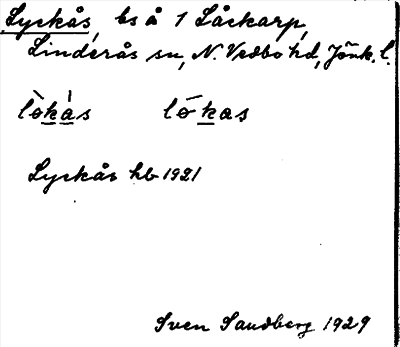 Lyckås, bs å 1 Låckarp,
Linderås sn, N. Vedbo hd, Jönk. l.
lòkås lókas
Lyckås hb 1921
Sven Sandberg 1929